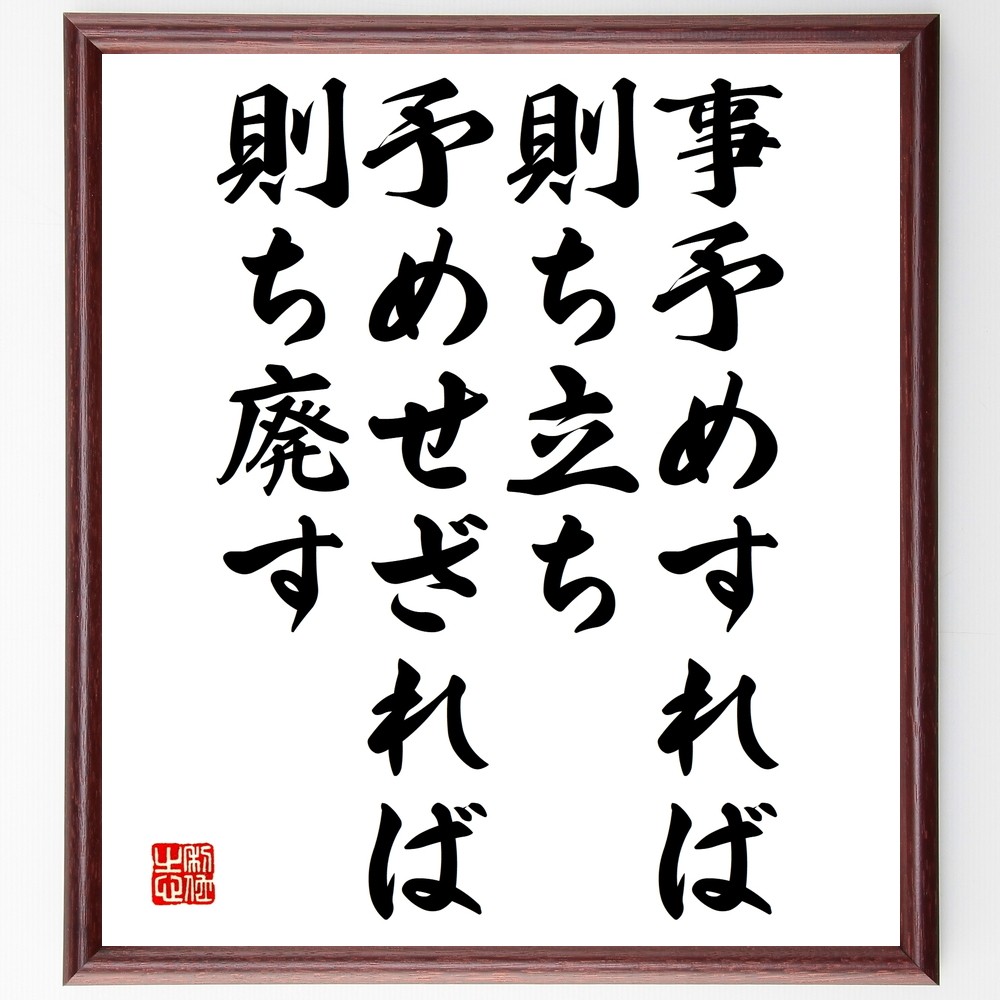 事予めすれば
則ち立ち
予めせざれば
則ち廃す